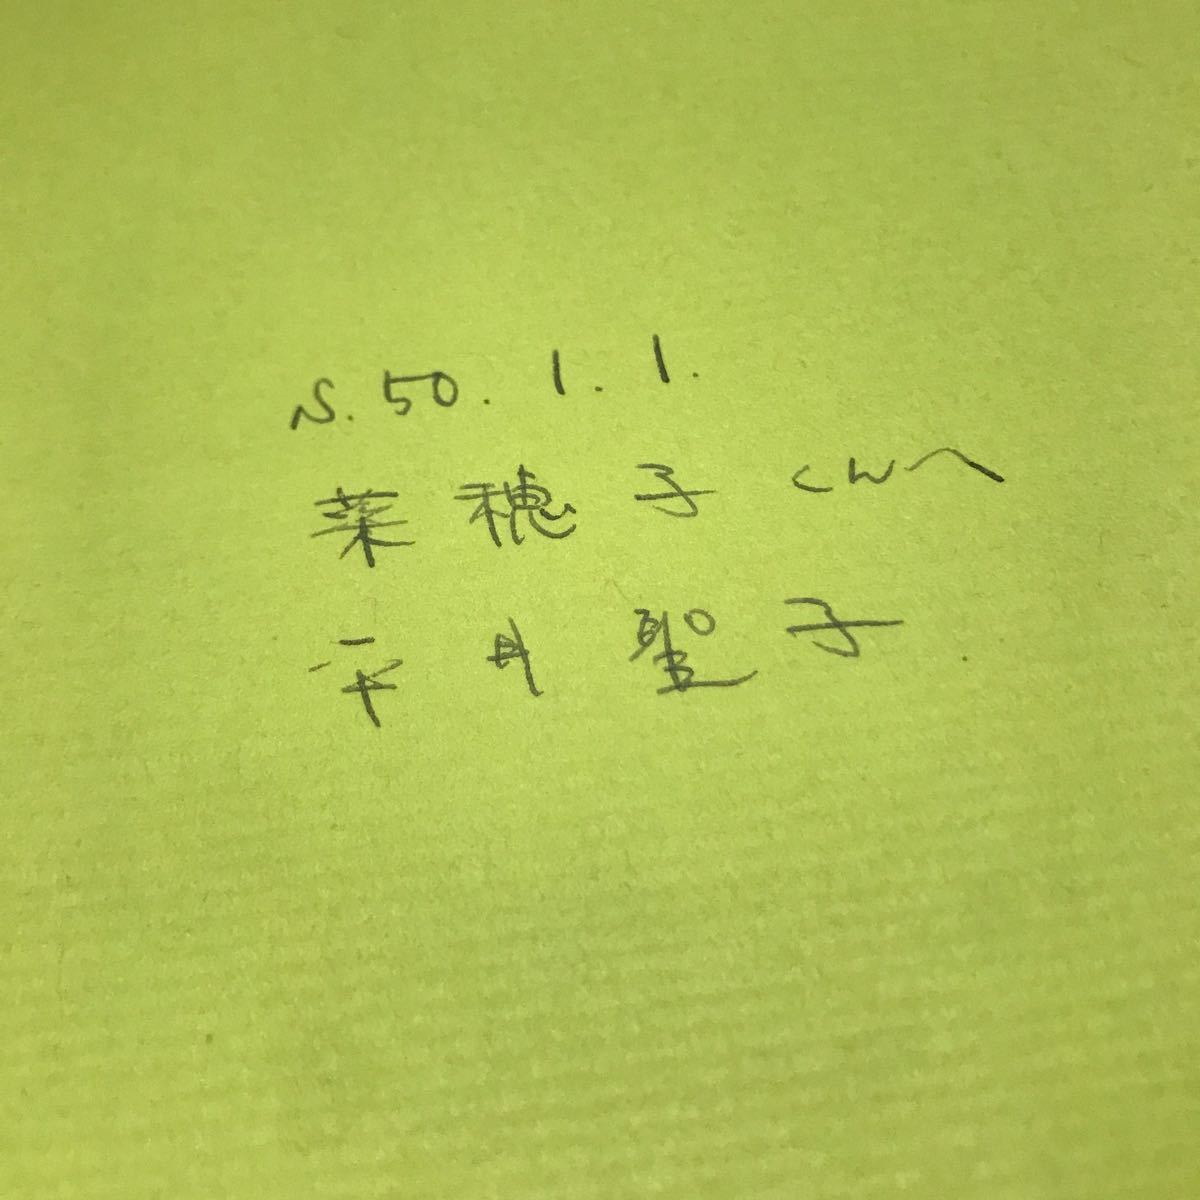 S.50.1.1.
菜穂子くんへ
平井聖子